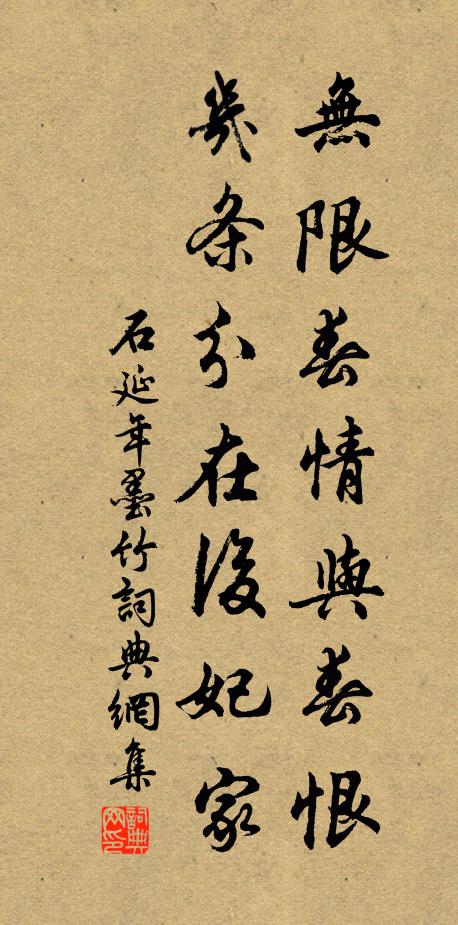 無限春情與春恨
幾条分在後妃家
石延年墨竹詞典網集
詞典网印